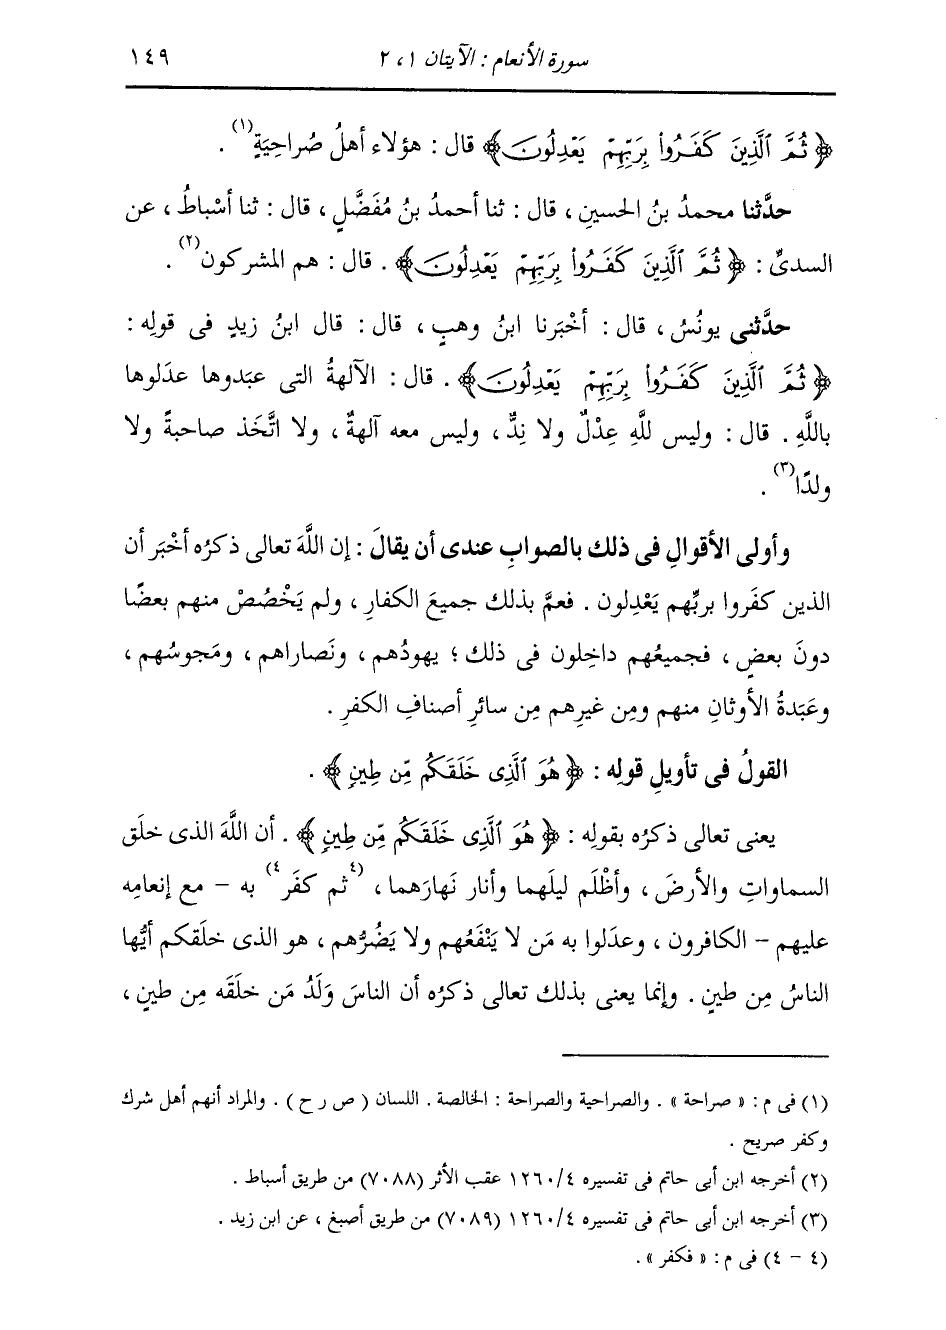 سورة الأنعام : الآيتان ١ ، ٢ ١٤٩
﴿ ثُمَّ ٱلَّذِينَ كَفَرُوا۟ بِرَبِّهِمْ يَعْدِلُونَ ﴾ قال : هؤلاء أهلُ صُراحِيَةٍ(١) .
حدَّثنا محمدُ بنُ الحسينِ ، قال : ثنا أحمدُ بنُ مُفَضَّلٍ ، قال : ثنا أسْباطُ ، عن
السدىِّ : ﴿ ثُمَّ ٱلَّذِينَ كَفَرُوا۟ بِرَبِّهِمْ يَعْدِلُونَ ﴾ . قال : هم المشركون(٢) .
حدَّثنى يونُسُ ، قال : أخْبَرنا ابنُ وهبٍ ، قال : قال ابنُ زيدٍ فى قولِه :
﴿ ثُمَّ ٱلَّذِينَ كَفَرُوا۟ بِرَبِّهِمْ يَعْدِلُونَ ﴾ . قال : الآلهةُ التى عبَدوها عدَلوها
باللَّهِ . قال : وليس للَّهِ عِدْلٌ ولا نِدٌّ ، وليس معه آلهةٌ ، ولا اتَّخَذ صاحبةً ولا
ولدًا(٣) .
وأولى الأقوالِ فى ذلك بالصوابِ عندى أن يقالَ : إن اللَّهَ تعالى ذكرُه أخْبَر أن
الذين كفَروا بربِّهم يَعْدِلون . فعمَّ بذلك جميعَ الكفارِ ، ولم يَخْصُصْ منهم بعضًا
دونَ بعضٍ ، فجميعُهم داخِلون فى ذلك ؛ يهودُهم ، ونَصاراهم ، ومَجوسُهم ،
وعَبَدةُ الأوثانِ منهم ومِن غيرِهم مِن سائرِ أصنافِ الكفرِ .
القولُ فى تأويلِ قولِه : ﴿ هُوَ ٱلَّذِى خَلَقَكُم مِّن طِينٍ ﴾ .
يعنى تعالى ذكرُه بقولِه : ﴿ هُوَ ٱلَّذِى خَلَقَكُم مِّن طِينٍ ﴾ . أن اللَّهَ الذى خلَق
السماواتِ والأرضَ ، وأظْلَم ليلَهما وأنار نَهارَهما ، (٤ثم كفَر٤) به – مع إنعامِه
عليهم – الكافرون ، وعدَلوا به مَن لا يَنْفَعُهم ولا يَضُرُّهم ، هو الذى خلَقكم أيُّها
الناسُ مِن طينٍ . وإنما يعنى بذلك تعالى ذكرُه أن الناسَ وَلَدُ مَن خلَقَه مِن طينٍ ،
(١) فى م : « صراحة » . والصراحية والصراحة : الخالصة . اللسان ( ص ر ح ) . والمراد أنهم أهل شرك
وكفر صريح .
(٢) أخرجه ابن أبى حاتم فى تفسيره ١٢٦٠/٤ عقب الأثر (٧٠٨٨) من طريق أسباط .
(٣) أخرجه ابن أبى حاتم فى تفسيره ١٢٦٠/٤ (٧٠٨٩) من طريق أصبغ ، عن ابن زيد .
(٤ – ٤) فى م : « فكفر » .